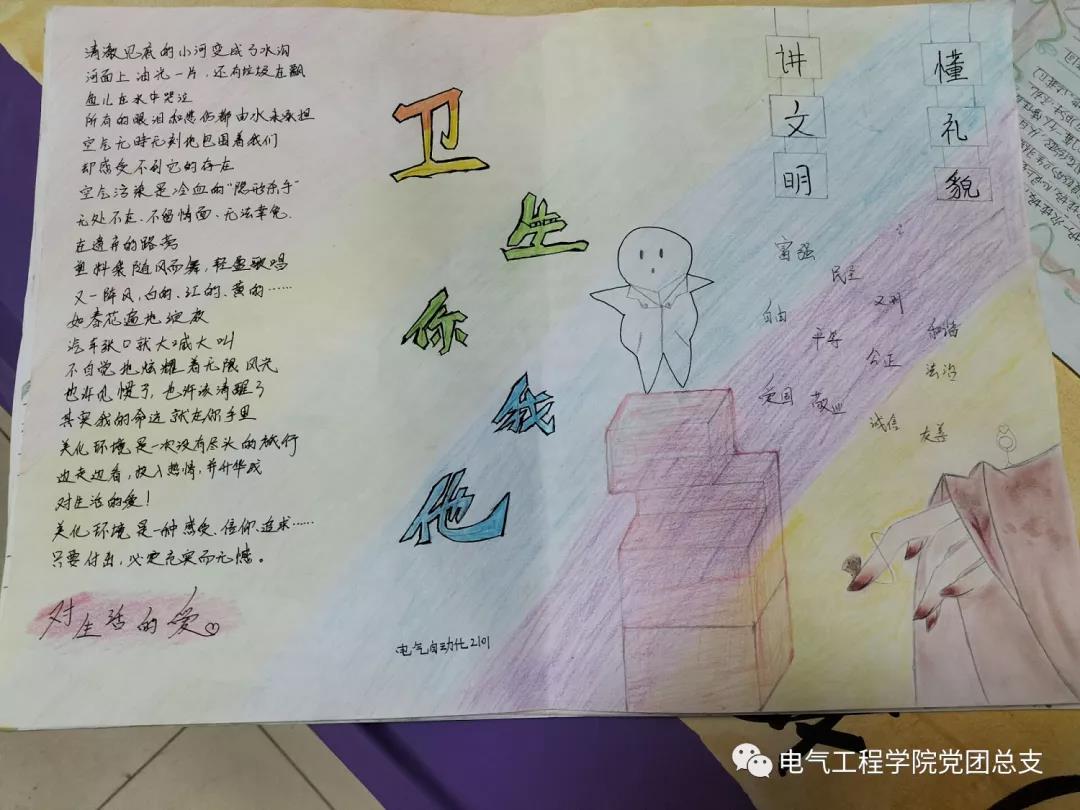 清澈见底的小河变成了水沟
河面上油光一片，还有垃圾在飘
鱼儿在水中哭泣
所有的眼泪和悲伤都由水来承担
空气无时无刻地包围着我们
却感受不到它的存在
空气污染是冷血的“隐形杀手”
无处不在、不留情面、无法幸免.
在遗弃的路旁
塑料袋随风而舞，轻盈歌唱
又一阵风，白的、红的、黄的……
如春花遍地绽放
汽车张口就大喊大叫
不自觉地炫耀着无限风光
也许见惯了，也许该清醒了
其实我的命运就在你手里
美化环境是一次没有尽头的旅行
边走边看，投入热情，并升华成
对生活的爱！
美化环境是一种感受、信仰、追求……
只要付出，必定充实而无憾。
对生活的爱
卫生你我他
电气自动化2101
讲文明
懂礼貌
富强 民主 文明 和谐
自由 平等 公正 法治
爱国 敬业 诚信 友善
电气工程学院党团总支